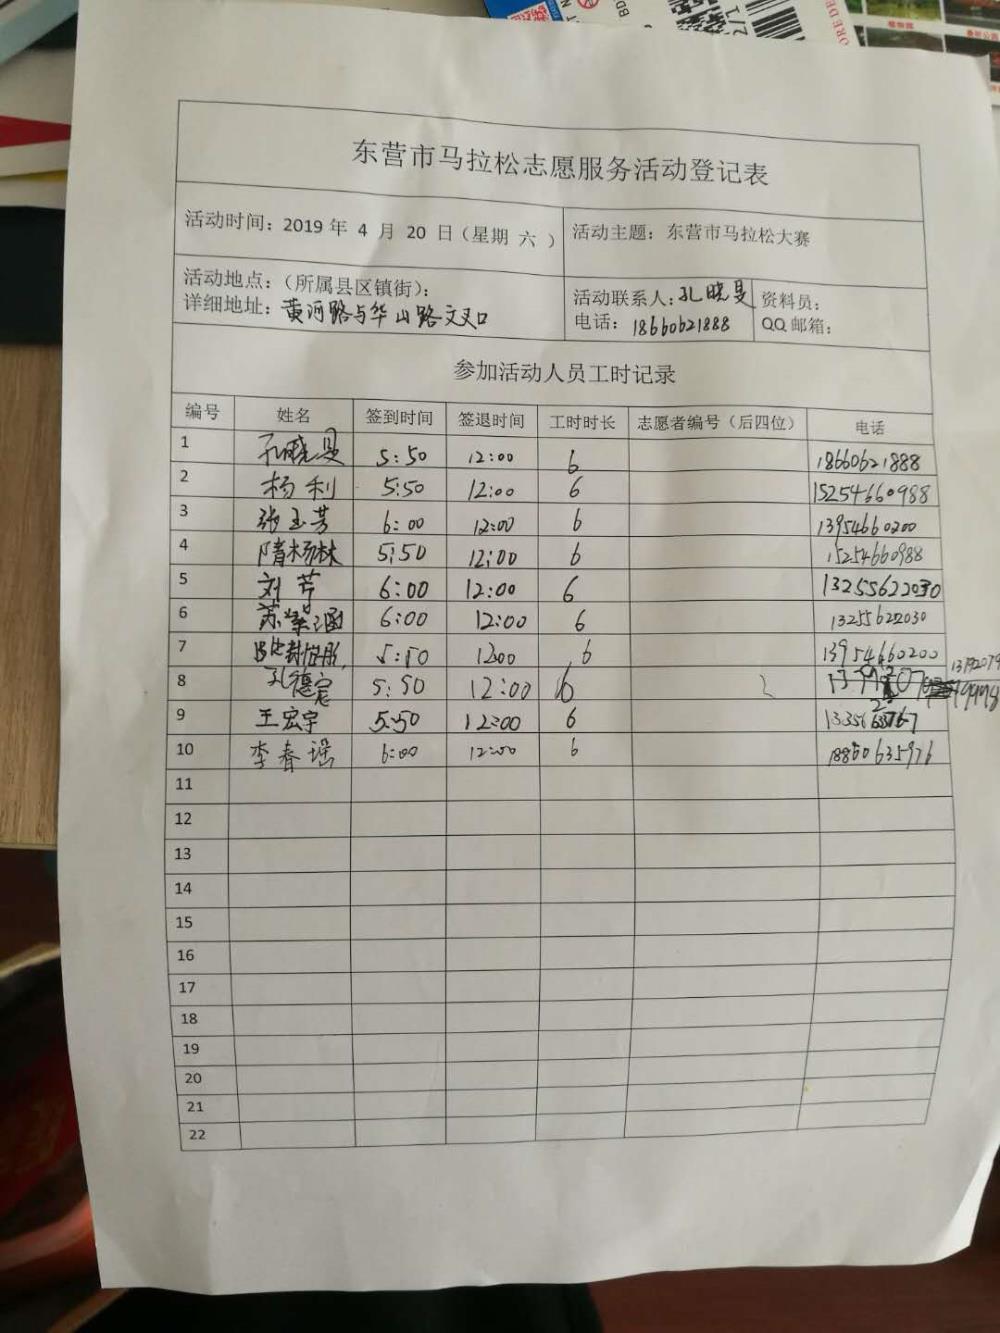 东营市马拉松志愿服务活动登记表
活动时间：2019 年 4 月 20 日（星期 六 ） 活动主题：东营市马拉松大赛
活动地点：（所属县区镇街）：
详细地址：黄河路与华山路交叉口
活动联系人：孔晓旻 资料员：
电话：18660621888 QQ 邮箱：
参加活动人员工时记录
编号 姓名 签到时间 签退时间 工时时长 志愿者编号（后四位） 电话
1 孔晓旻 5:50 12:00 6 18660621888
2 杨利 5:50 12:00 6 15254660988
3 张玉芳 6:00 12:00 6 13954660200
4 隋杨林 5:50 12:00 6 15254660988
5 刘芹 6:00 12:00 6 13255622030
6 苏紫涵 6:00 12:00 6 13255622030
7 5:50 1200 6 13954660200
8 孔德宽 5:50 12:00 6
9 王宏宇 5:50 12:00 6
10 李春瑶 6:00 12:00 6 18860635976
11
12
13
14
15
16
17
18
19
20
21
22